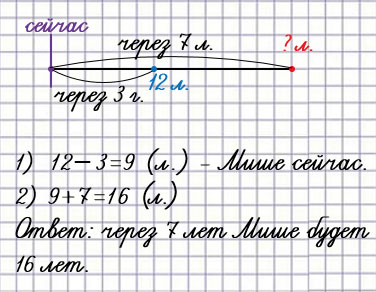 сейчас
через 7 л.
? л.
12 л.
через 3 г.
1) 12 – 3 = 9 (л.) – Мише сейчас.
2) 9 + 7 = 16 (л.)
Ответ: через 7 лет Мише будет
16 лет.